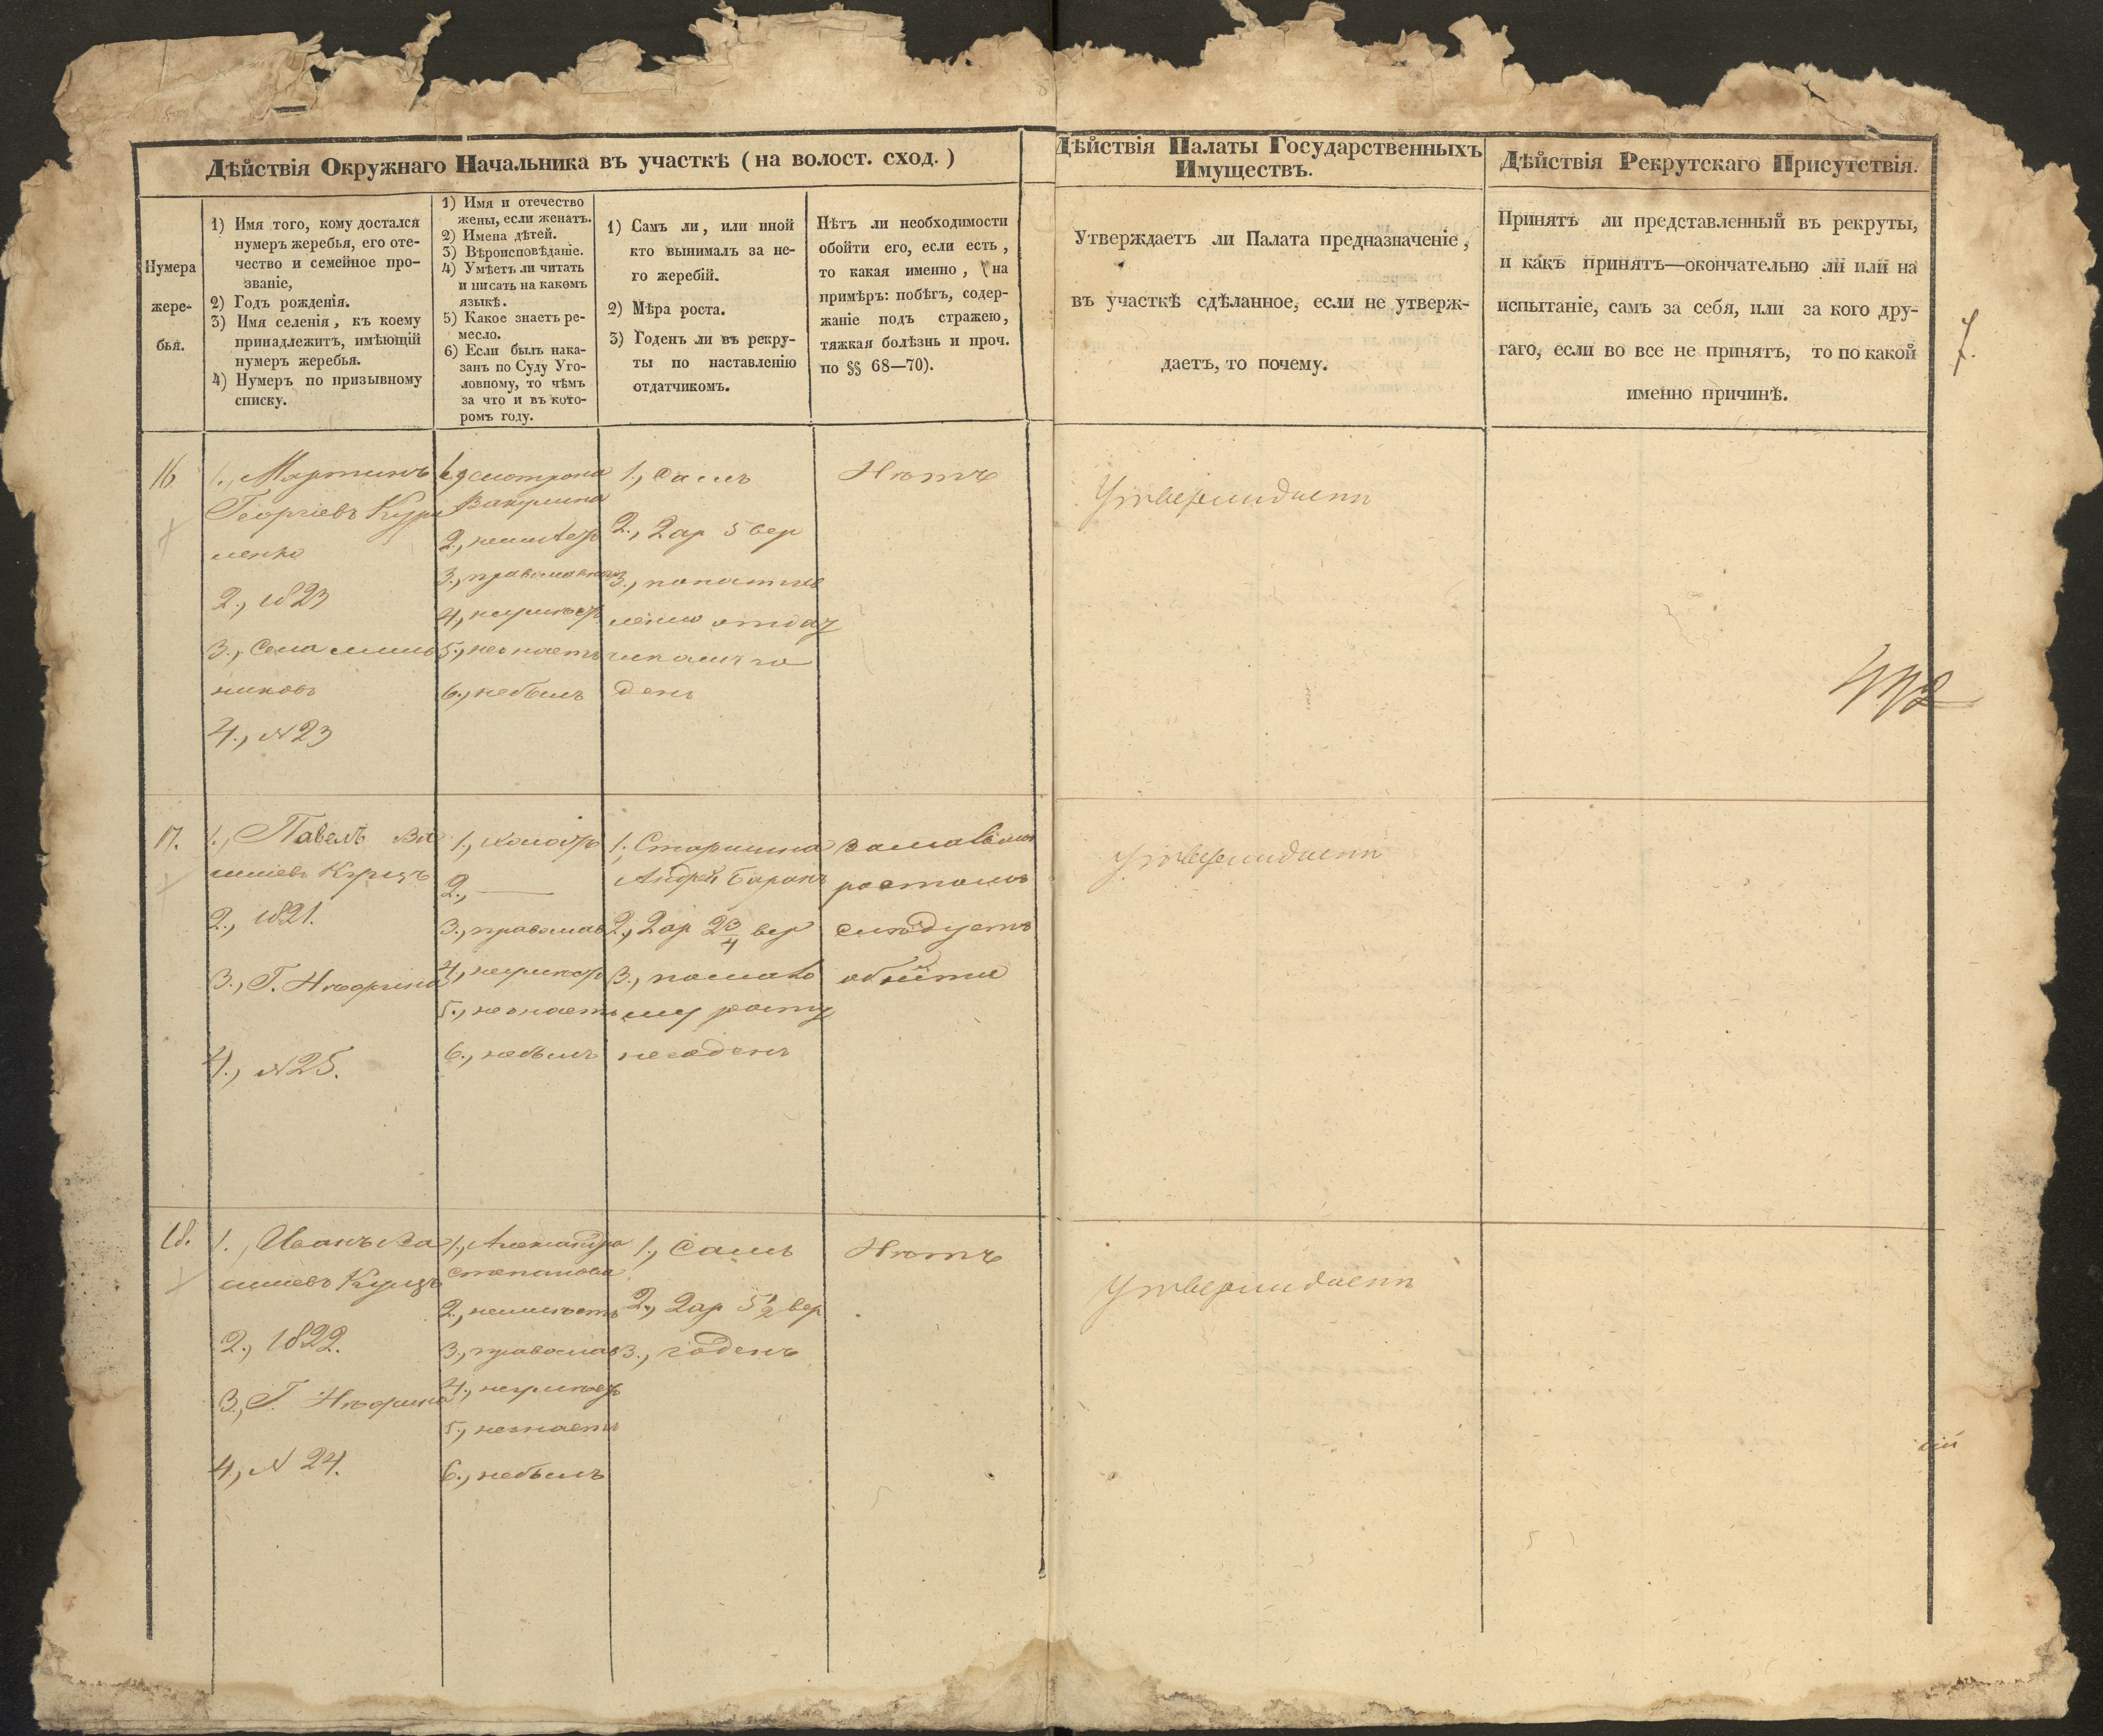 Дѣйствія Окружнаго Начальника въ участкѣ (на волост. сход.)
Нумера
жере-
бья.
1) Имя того, кому достался
нумеръ жеребья, его оте-
чество и семейное про-
званіе,
2) Годъ рожденія.
3) Имя селенія, къ коему
принадлежитъ, имѣющій
нумеръ жеребья.
4) Нумеръ по призывному
списку.
1) Имя и отечество
жены, если женатъ.
2) Имена дѣтей.
3) Вѣроисповѣданіе.
4) Умѣетъ ли читать
и писать на какомъ
языкѣ.
5) Какое знаетъ ре-
месло.
6) Если былъ нака-
занъ по Суду Уго-
ловному, то чѣмъ
за что и въ кото-
ромъ году.
1) Самъ ли, или иной
кто вынималъ за не-
го жеребій.
2) Мѣра роста.
3) Годенъ ли въ рекру-
ты по наставленію
отдатчикомъ.
Нѣтъ ли необходимости
обойти его, если есть,
то какая именно, (на
примѣръ: побѣгъ, содер-
жаніе подъ стражею,
тяжкая болѣзнь и проч.
по §§ 68—70).
Дѣйствія Палаты Государственныхъ
Имуществъ.
Утверждаетъ ли Палата предназначеніе,
въ участкѣ сдѣланное, если не утверж-
даетъ, то почему.
Дѣйствія Рекрутскаго Присутствія.
Принятъ ли представленный въ рекруты,
и какъ принятъ—окончательно ли или на
испытаніе, самъ за себя, или за кого дру-
гаго, если во все не принятъ, то по какой
именно причинѣ.
7.
16
1., Мартинъ
Георгіевъ Кур
ленко
2., 1823
3., Села
4., N23
2., неимѣетъ
3., православнаго
4, неумѣетъ
5., незнаетъ
6., небылъ
1., Самъ
2., 2 ар 5 вер
3., понастав
ленію отдат
чикамъ го
денъ
Нѣтъ
Утверждаетъ
17.
1., Павелъ Ва
силіевъ Курцъ
2., 1821.
3., Г. Нѣжина
4., N25.
1., холостъ
2., —
3., православ
4, неумѣетъ
5., незнаетъ
6., небылъ
1., Старшина
Андрей Баранъ
2., 2 ар 2 3/4 вер
3., помало
му росту
негоденъ
Замалымъ
ростомъ
слѣдуетъ
обойти
Утверждаетъ
18.
1., Иванъ Ва
силіевъ Курцъ
2., 1822.
3., Г. Нѣжина
4., N 24.
1., Александра
Степанова
2., неимѣетъ
3., православ
4., неумѣетъ
5., незнаетъ
6., небылъ
1., Самъ
2., 2 ар 5 1/2 вер
3., годенъ
Нѣтъ
Утверждаетъ